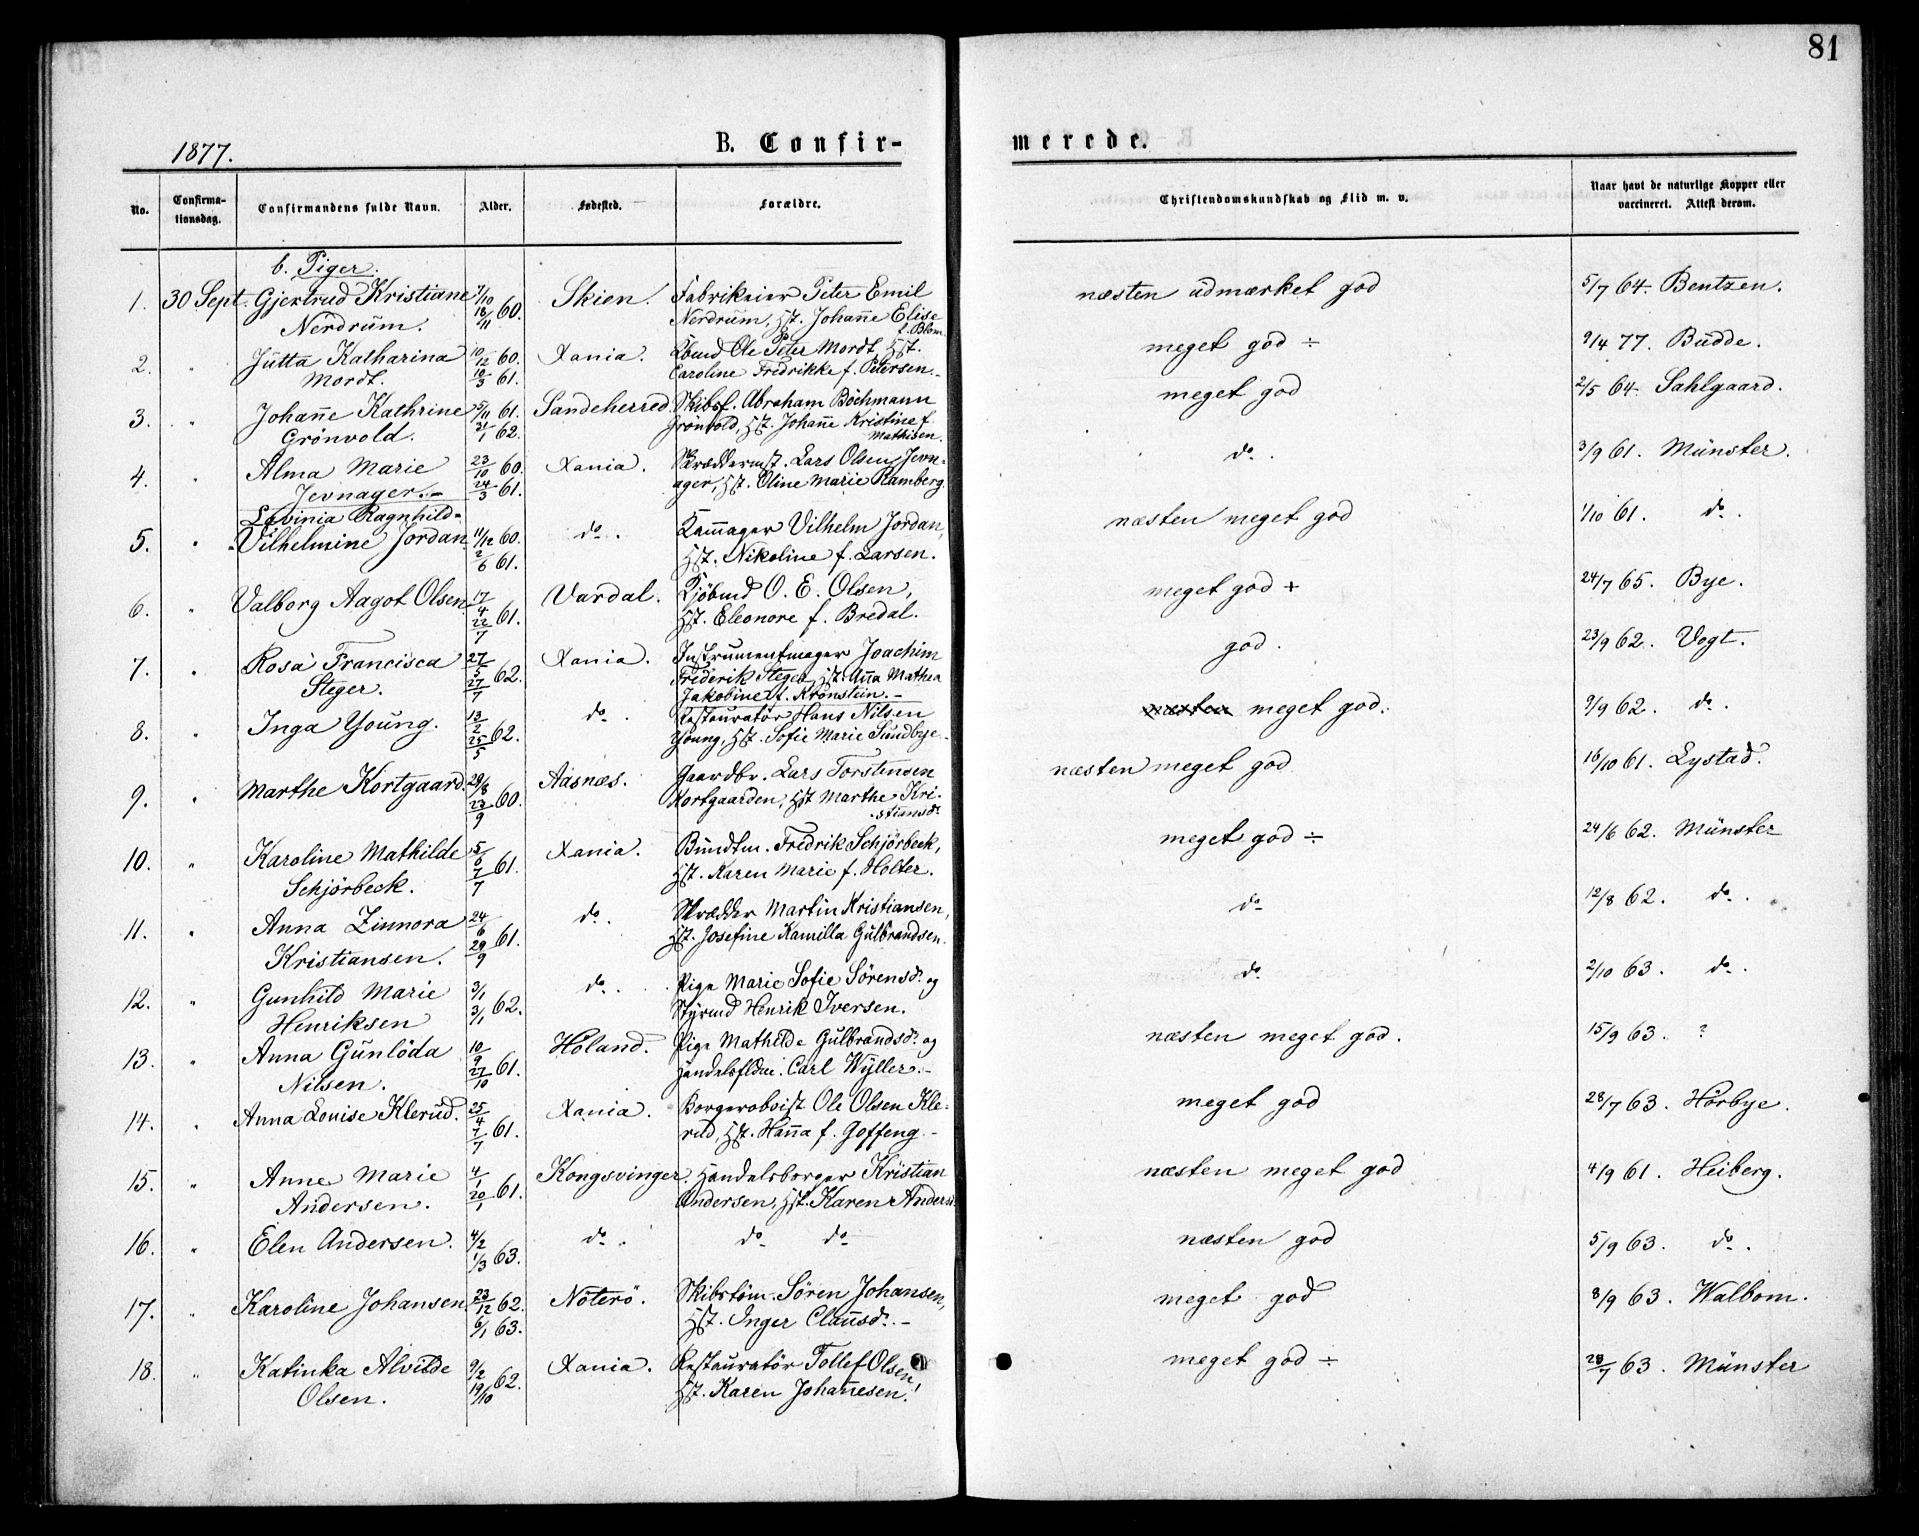 81
1877.
B. Confirmerede.
No. Confirmationsdag. Confirmandens fulde Navn. Alder. Fødested. Forældre. Christendomskundskab og Flid m. v. Naar havt de naturlige Kopper eller vaccineret. Attest derom.
b. Piger.
1. 30 Sept. Gjertrud Kristiane 7/10 Skien. Fabrikeier Peter Emil næsten udmærket god 5/7 64. Bentzen.
Nerdrum. 18/11 60. Nerdrum, Hst. Johanne Elise
f. Blom.
2. " Jutta Katharina 10/12 60. Xania. Kbmd Ole Peter Mordt, Hst. meget god ÷ 9/4 77. Budde.
Mordt. 10/3 61. Caroline Fredrikke f. Petersen.-
3. " Johanne Kathrine 5/11 61. Sandeherred. Skibsf. Abraham Böchmann meget god 2/5 64. Sahlgaard.
Grönvold. 21/1 62. Grönvold, Hst. Johanne Kristine f.
Mathisen.
4. " Alma Marie 23/10 60. Xania. Skræddermst. Lars Olsen Jevn- do. 3/9 61. Münster.
Jevnager.- 24/3 61. ager, Hst. Oline Marie Ramberg.
Lavinia Ragnhild-
5. " Vilhelmine Jordan. 11/12 60. do. Kammager Vilhelm Jordan, næsten meget god 1/10 61. do.
2/6 61. Hst. Nikoline f. Larsen.
6. " Valborg Aagot Olsen 17/4 61. Vardal. Kjöbmd O. E. Olsen, meget god + 24/7 65. Bye.
22/7 Hst. Eleonore f. Bredal.
7. " Rosa Francisca 27/5 62. Xania. Instrumentmager Joachim god. 23/9 62. Vogt.
Steger. 27/7 Frederik Steger, Hst. Anna Mathea
Jakobine f. Kronstein.-
8. " Inga Young. 13/2 62. do. Restauratör Hans Nilsen næsten meget god. 9/9 62. do.
25/5 Young, Hst. Sofie Marie Sundbye.
9. " Marthe Kortgaard. 29/8 60. Aasnæs. Gaardbr. Lars Torstensen næsten meget god 16/10 61. Lystad.
23/9 Kortgaarden, Hst Marthe Kri-
stiansdr.
10. " Karoline Mathilde 5/6 61. Xania. Bundtm. Fredrik Schjörbeck, meget god ÷ 24/6 62. Münster
Schjörbeck. 7/7 Hst. Karen Marie f. Holter.
11. " Anna Zinnora 24/6 61. do. Skrædder Martin Kristiansen, do 12/8 62. do.
Kristiansen. 29/9 Hst. Josefine Kamilla Gulbrandsen.
12. " Gunhild Marie 3/1 62. do. Pige Marie Sofie Sörensdr og do. 2/10 63. do.
Henriksen 3/1 Styrmd Henrik Iversen.
13. " Anna Gunlöda 10/9 61. Höland. Pige Mathilde Gulbrandsdr og næsten meget god. 15/9 63. ?
Nilsen. 27/10 Carl Wyller.-
14. " Anna Louise Klerud. 25/4 61. Xania. Ole Olsen Kle- meget god 28/7 63. Hörbye.
7/7 rud, Hst. Hanna f. Goffeng.-
15. " Anne Marie 4/1 61. Kongsvinger. Handelsborger Kristian næsten meget god 4/9 61. Heiberg.
Andersen. 20/1 Andersen, Hst. Karen Anders
16. " Elen Andersen. 4/2 63. do. do do næsten god 5/9 63. do.
1/3
17. " Karoline Johansen 23/12 62. Nöterö. Skibstöm. Sören Johansen, meget god 8/9 63. Walbom.
6/1 63. Hst. Inger Clausdr.-
18. " Katinka Alvilde 9/2 62. Xania. Restauratör Tollef Olsen, meget god ÷ 28/7 63. Münster
Olsen. 19/10 Hst. Karen Johannesen.